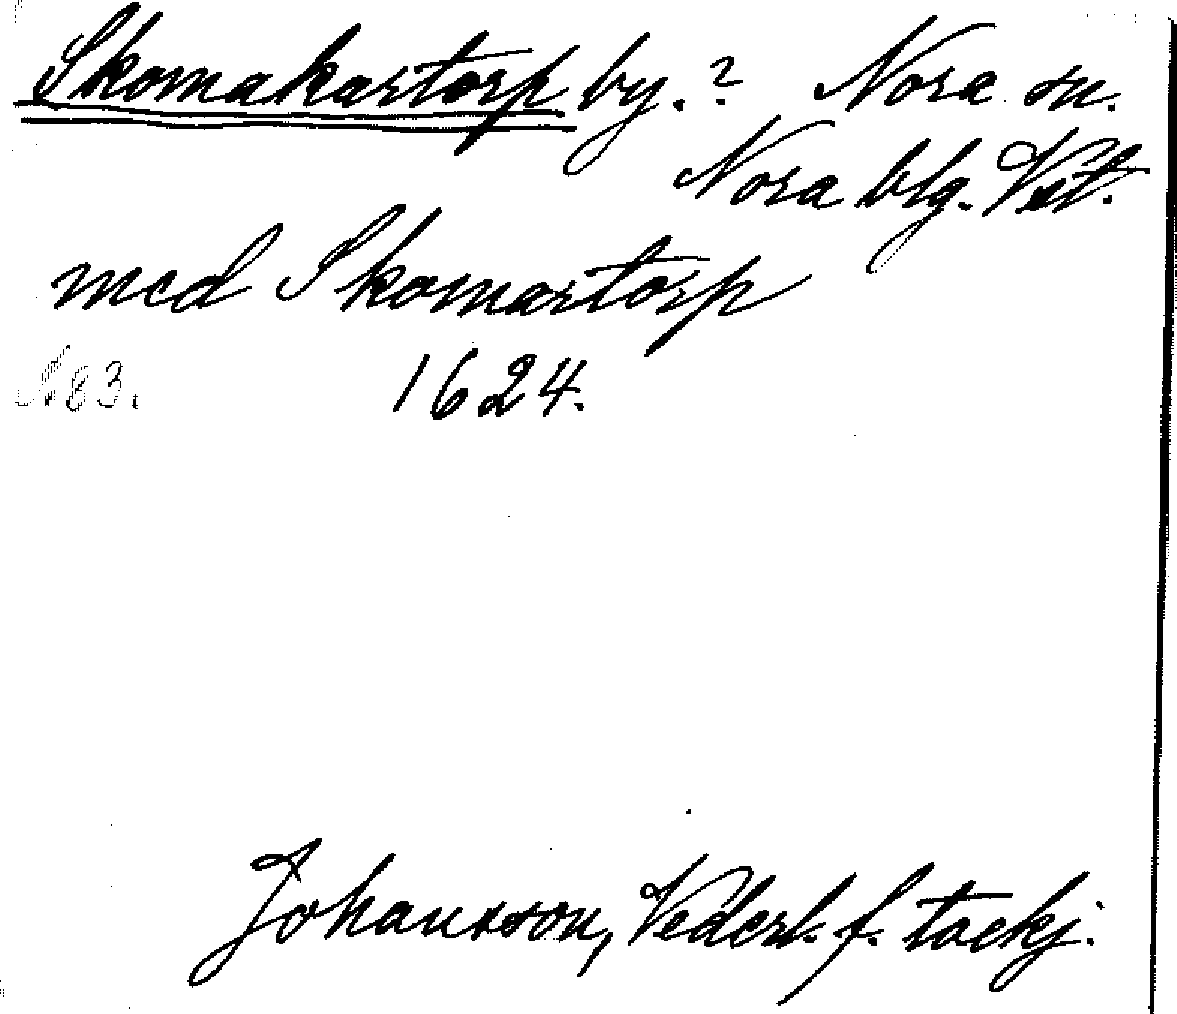 Skomakartorp by.? Nora sn.
Nora blg. Vst.
med Skomartorp
N83. 1624.
Johansson, Vederl. f. tackj.